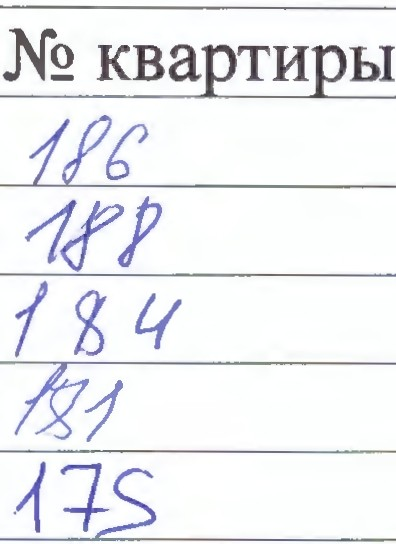 № квартиры
186
188
184
181
175